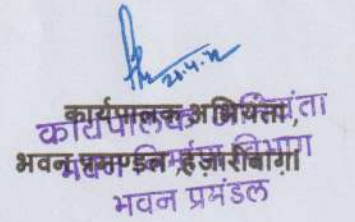 21.4.22
कार्यपालक अभियंता,
भवन प्रमण्डल, हजारीबाग।
कार्यपालक अभियंता
भवन निर्माण विभाग
भवन प्रमंडल